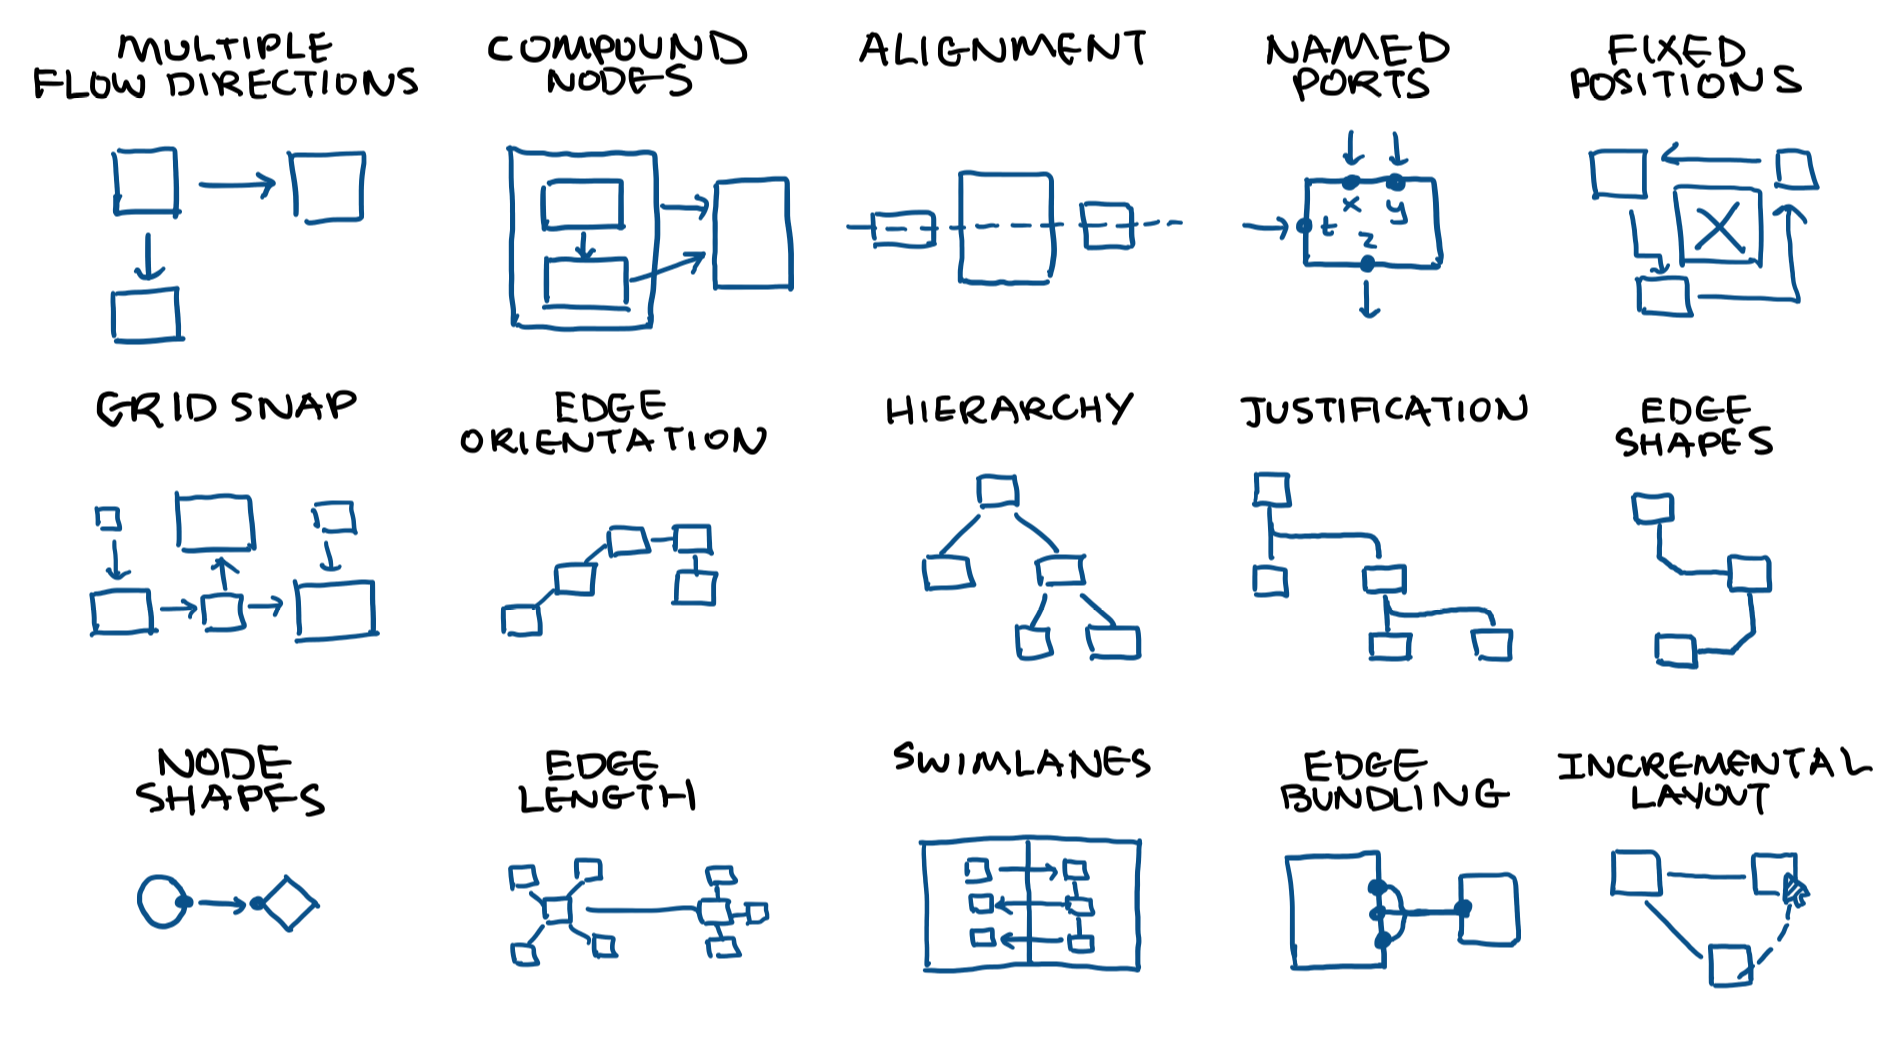 MULTIPLE
FLOW DIRECTIONS
COMPOUND
NODES
ALIGNMENT
NAMED
PORTS
x y
t
z
FIXED
POSITIONS
GRID SNAP
EDGE
ORIENTATION
HIERARCHY
JUSTIFICATION
EDGE
SHAPES
NODE
SHAPES
EDGE
LENGTH
SWIMLANES
EDGE
BUNDLING
INCREMENTAL
LAYOUT